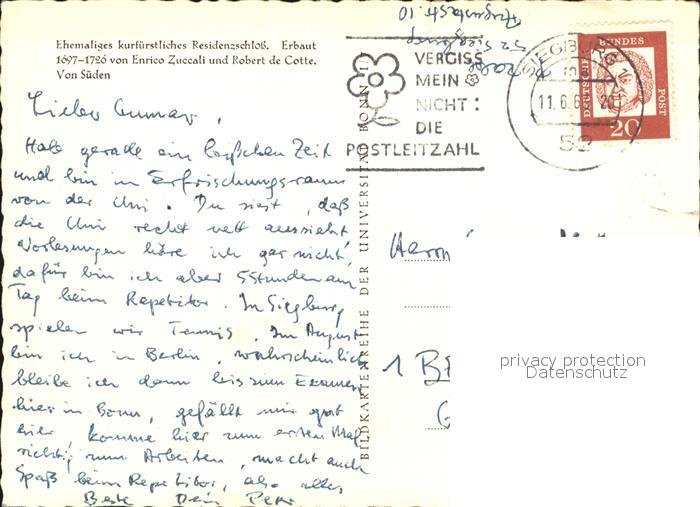 Ehemaliges kurfürstliches Residenzschloß. Erbaut
1697-1726 von Enrico Zuccali und Robert de Cotte.
Von Süden
Lieber
Hab gerade ein bißchen Zeit
und bin im Erfrischungsraum
von der Uni. Du siest, daß
die Uni recht nett aussieht
Vorlesungen höre ich gar nicht,
dafür bin ich aber 5 Stunden am
Tag beim Repetitor. In Siegburg
spielen wir Tennis. Im August
bin ich in Berlin, wahrscheinlich
bleibe ich dann bis zum Examen
hier in Bonn, gefällt mir gut
hier, komme hier zum ersten Mal
richtig zum Arbeiten, macht auch
Spaß beim Repetitor, also alles
Beste Dein Peter
BILDKARTENREIHE DER UNIVERSITÄT BONN
52 Siegburg
10
VERGISS
MEIN
NICHT:
DIE
POSTLEITZAHL
SIEGBURG
11.6.6
20
52
DEUTSCHE BUNDES POST
20
Herrn
1 BE
privacy protection
Datenschutz